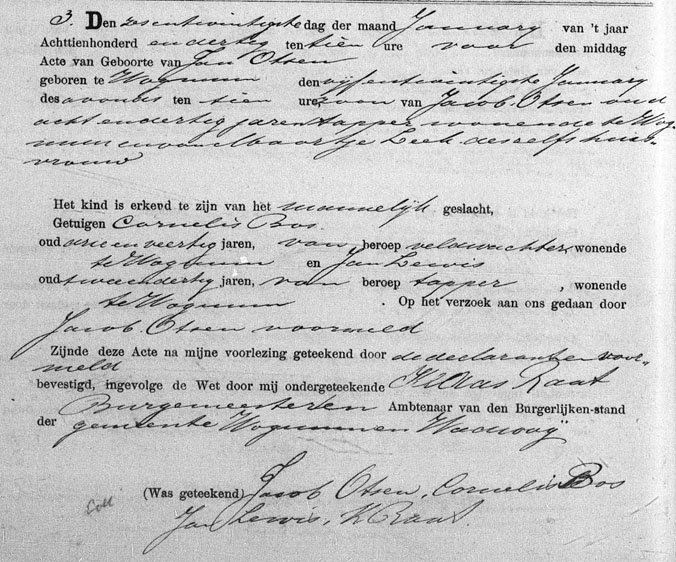 3. Den zesentwintigste dag der maand January van 't jaar
Achttienhonderd en dertig ten tien ure voor den middag
Acte van Geboorte van Jan Otsen
geboren te Wognum den vijfentwintigste January
des avonds ten tien ure, zoon van Jacob Otsen oud
acht en dertig jaren tapper wonende te Wog-
num en van Baartje Leek deszelfs huis-
vrouw
Het kind is erkend te zijn van het mannelijk geslacht,
Getuigen Cornelis Bos
oud drie en veertig jaren, van beroep veldwachter, wonende
te Wognum en Jan Lewis
oud twee endertig jaren, van beroep tapper, wonende
te Wognum. Op het verzoek aan ons gedaan door
Jacob Otsen voormeld
Zijnde deze Acte na mijne voorlezing geteekend door de declaranten voor-
meld
bevestigd, ingevolge de Wet door mij ondergeteekende Klaas Raat
Burgemeester en Ambtenaar van den Burgerlijken-stand
der gemeente Wognum en Wadway
(Was geteekend) Jacob Otsen, Cornelis Bos
Jan Lewis, K Raat.